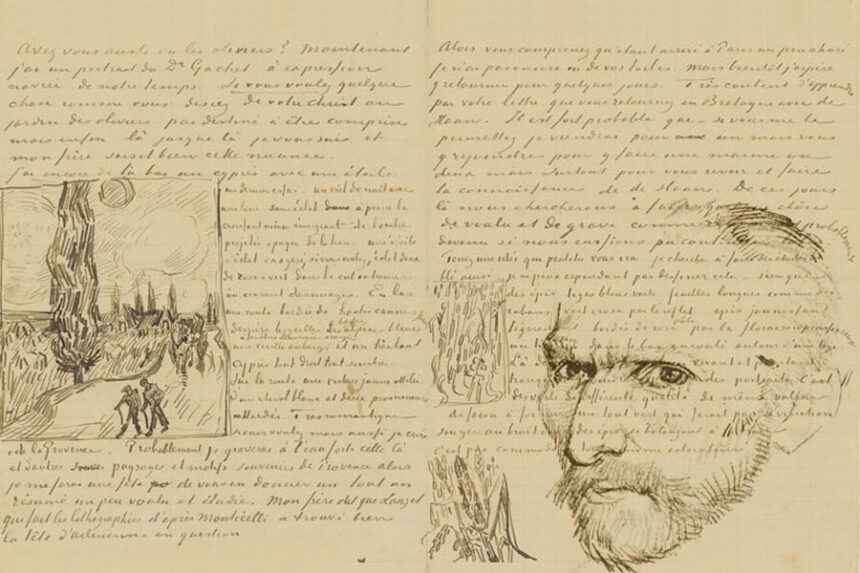 Avez vous aussi vu les oliviers? Maintenant
j'ai un portrait du Dr Gachet à expression
navrée de notre temps. Si vous voulez quelque
chose comme vous disiez de votre Christ au
jardin des oliviers pas destiné à être compris
mais enfin là jusque là je vous suis et
mon frère saisit bien cette nuance.
j'ai encore de là bas un cyprès avec une étoile
un ciel de nuit avec
une lune sans éclat à peine le
croissant mince émergeant de l'ombre
projetée opaque de la terre une étoile
à éclat exagéré, si vous voulez, éclat doux
de rose et vert dans le ciel outremer
où courent des nuages. En bas
une route bordée de hautes cannes
derrière lesquelles les Alpines bleues
une vieille auberge et un très haut
cyprès tout droit tout sombre.
Sur la route une voiture jaune attelée
d'un cheval blanc et deux promeneurs
attardés. Très romantique
si vous voulez mais aussi je crois
de la Provence. Probablement je graverai à l'eau forte celle là
et d'autres paysages et motifs souvenirs de Provence alors
je me ferai une fête de vous en donner un tout un
résumé un peu voulu et étudié. Mon frère dit que Lauzet
qui fait les lithographies d'après Monticelli a trouvé bien
la tête d'arlésienne en question
Alors vous comprenez qu'étant arrivé à Paris un peu ahuri
je n'ai pas encore vu de vos toiles. Mais bientôt j'espère
y retourner pour quelques jours. Très content d'apprendre
par votre lettre que vous retournez en Bretagne avec de
Haan. Il est fort probable que si vous me le
permettez je viendrai pour un mois vous
y rejoindre pour y faire une marine ou
deux mais surtout pour vous revoir et faire
la connaissance de de Haan. De ces jours
là nous chercherons à faire quelque chose
de voulu et de grave comme probablement
devenu si nous eussions pu
Tenez une idée qui peut-être vous ira. je cherche à faire des études
blé ainsi je ne peux cependant pas dessiner cela
des épis tiges bleues vertes feuilles longues comme des
rubans vert et rose par le reflet, épis jaunes
légèrement bordés de rose par la floraison
un dans le bas enroulé autour d'une
Là vivant et
des portraits
de différente qualité de même valeur
de façon à former un tout vert qui ferait par sa vibration
songer au bruit des épis se balançant à
c'est pas comme coloration